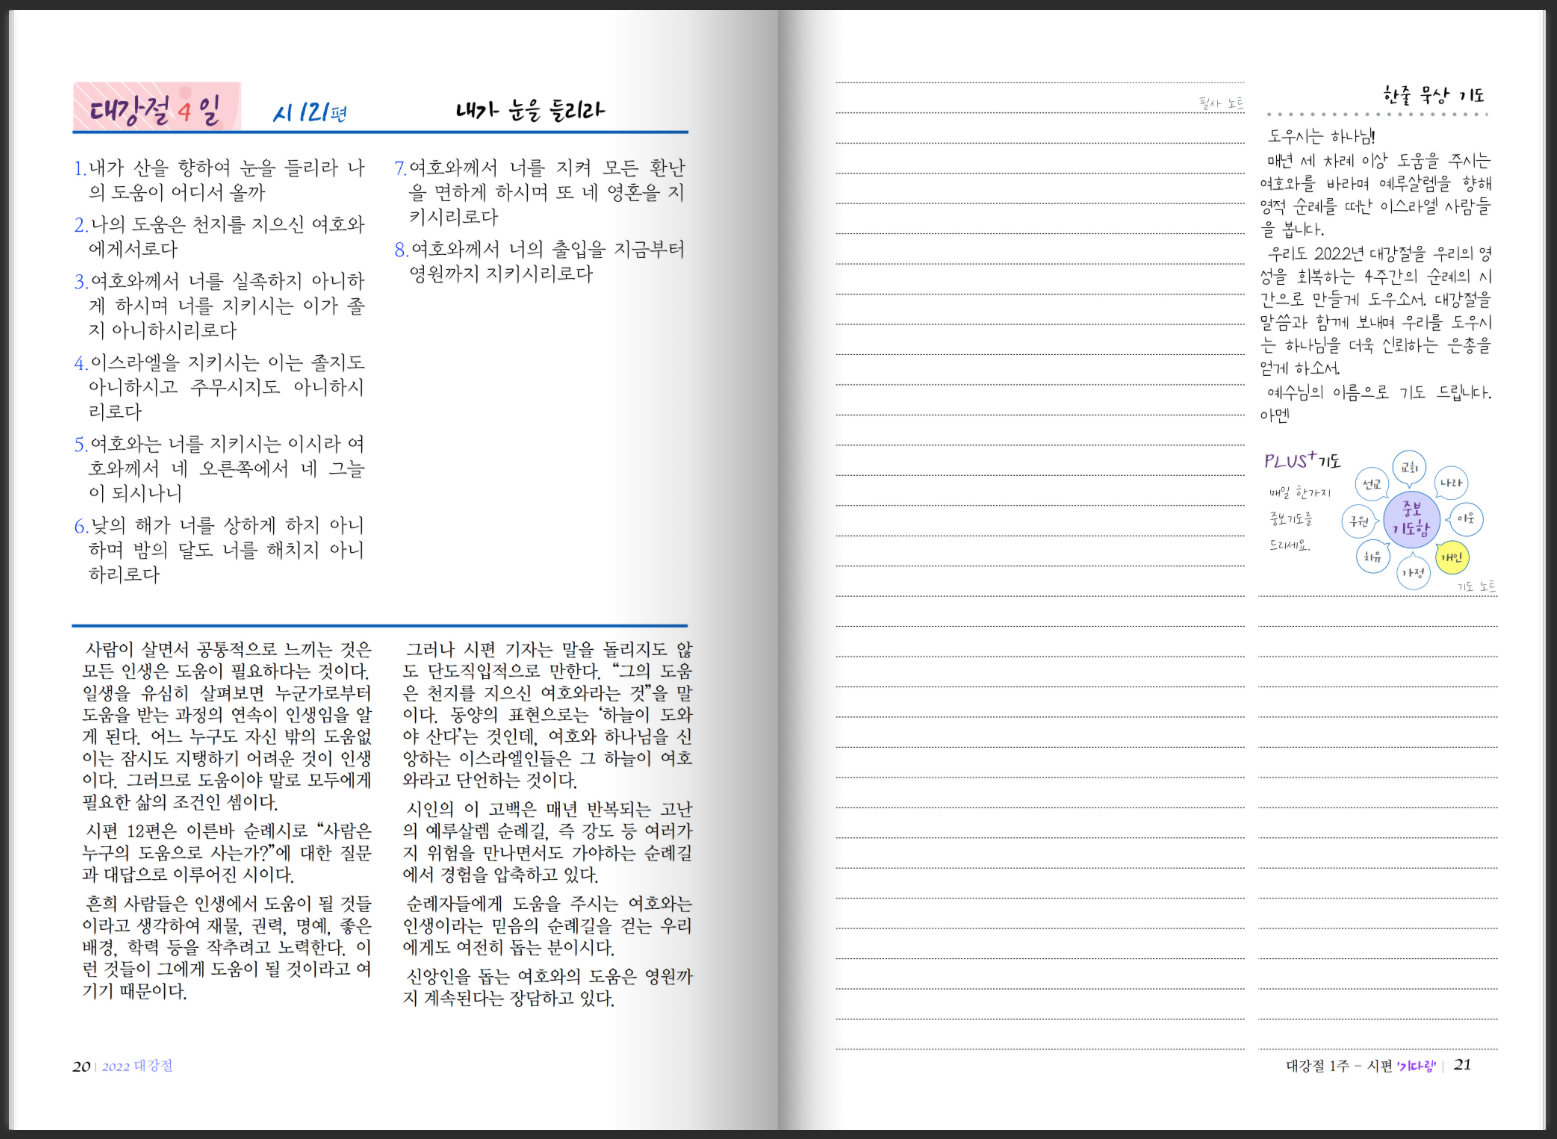 대강절 4 일 시 121편 내가 눈을 들리라
1.내가 산을 향하여 눈을 들리라 나
의 도움이 어디서 올까
2.나의 도움은 천지를 지으신 여호와
에게서로다
3.여호와께서 너를 실족하지 아니하
게 하시며 너를 지키시는 이가 졸
지 아니하시리로다
4.이스라엘을 지키시는 이는 졸지도
아니하시고 주무시지도 아니하시
리로다
5.여호와는 너를 지키시는 이시라 여
호와께서 네 오른쪽에서 네 그늘
이 되시나니
6.낮의 해가 너를 상하게 하지 아니
하며 밤의 달도 너를 해치지 아니
하리로다
7.여호와께서 너를 지켜 모든 환난
을 면하게 하시며 또 네 영혼을 지
키시리로다
8.여호와께서 너의 출입을 지금부터
영원까지 지키시리로다
사람이 살면서 공통적으로 느끼는 것은
모든 인생은 도움이 필요하다는 것이다.
일생을 유심히 살펴보면 누군가로부터
도움을 받는 과정의 연속이 인생임을 알
게 된다. 어느 누구도 자신 밖의 도움없
이는 잠시도 지탱하기 어려운 것이 인생
이다. 그러므로 도움이야 말로 모두에게
필요한 삶의 조건인 셈이다.
시편 12편은 이른바 순례시로 “사람은
누구의 도움으로 사는가?”에 대한 질문
과 대답으로 이루어진 시이다.
흔희 사람들은 인생에서 도움이 될 것들
이라고 생각하여 재물, 권력, 명예, 좋은
배경, 학력 등을 작추려고 노력한다. 이
런 것들이 그에게 도움이 될 것이라고 여
기기 때문이다.
그러나 시편 기자는 말을 돌리지도 않
도 단도직입적으로 만한다. “그의 도움
은 천지를 지으신 여호와라는 것”을 말
이다. 동양의 표현으로는 ‘하늘이 도와
야 산다’는 것인데, 여호와 하나님을 신
앙하는 이스라엘인들은 그 하늘이 여호
와라고 단언하는 것이다.
시인의 이 고백은 매년 반복되는 고난
의 예루살렘 순례길, 즉 강도 등 여러가
지 위험을 만나면서도 가야하는 순례길
에서 경험을 압축하고 있다.
순례자들에게 도움을 주시는 여호와는
인생이라는 믿음의 순례길을 걷는 우리
에게도 여전히 돕는 분이시다.
신앙인을 돕는 여호와의 도움은 영원까
지 계속된다는 장담하고 있다.
20 | 2022 대강절
필사 노트
한줄 묵상 기도
도우시는 하나님!
매년 세 차례 이상 도움을 주시는
여호와를 바라며 예루살렘을 향해
영적 순례를 떠난 이스라엘 사람들
을 봅니다.
우리도 2022년 대강절을 우리의 영
성을 회복하는 4주간의 순례의 시
간으로 만들게 도우소서. 대강절을
말씀과 함께 보내며 우리를 도우시
는 하나님을 더욱 신뢰하는 은총을
얻게 하소서.
예수님의 이름으로 기도 드립니다.
아멘
PLUS+기도
매일 한가지
중보기도를
드리세요.
중보
기도함
교회
나라
이웃
개인
가정
치유
구원
선교
기도 노트
대강절 1주 - 시편 '기다림' | 21